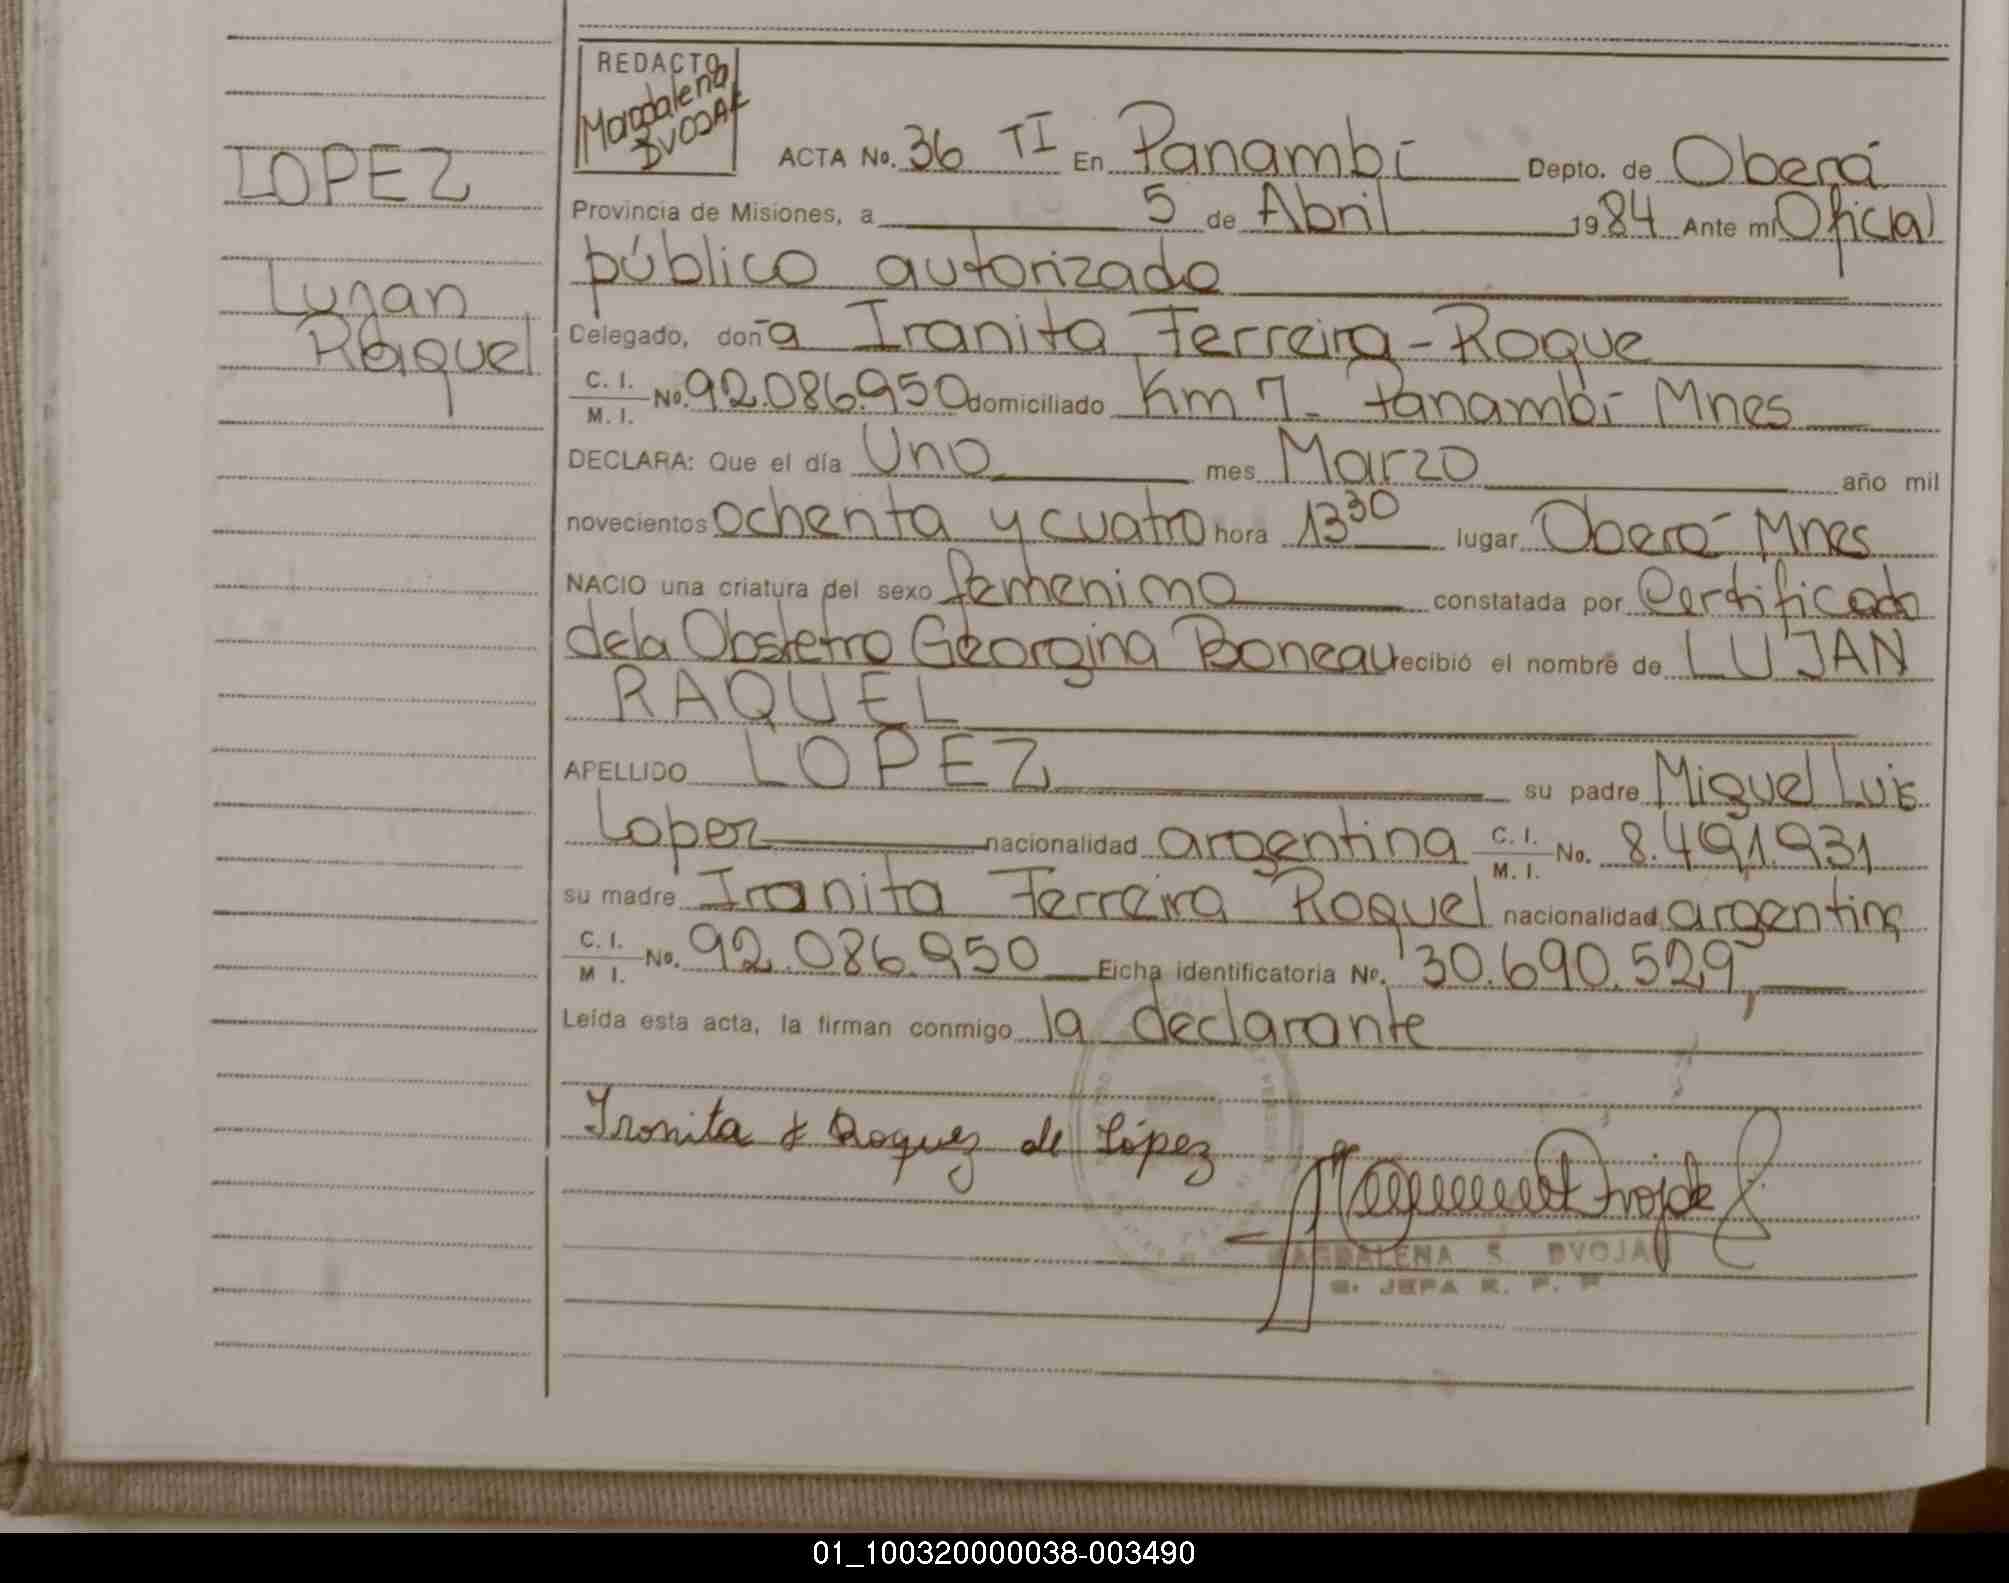 REDACTO
Magdalena
DVOJAK
LOPEZ
Lujan
Raquel
ACTA No. 36 TI En Panambí Depto. de Oberá
Provincia de Misiones, a 5 de Abril 1984 Ante mi Oficial
público autorizado
Delegado, doña Iranita Ferreira-Roque
C. I. / M. I. No. 92.086.950 domiciliado Km 7 - Panambí Mnes
DECLARA: Que el día Uno mes Marzo año mil
novecientos ochenta y cuatro hora 13 30 lugar Oberá Mnes
NACIO una criatura del sexo femenino constatada por Certificado
de la Obstetra Georgina Boneau recibió el nombre de LUJAN
RAQUEL
APELLIDO LOPEZ su padre Miguel Luis
Lopez nacionalidad argentina C. I. / M. I. No. 8.491.931
su madre Iranita Ferreira Roquel nacionalidad argentina
C. I. / M I. No. 92.086.950 Ficha identificatoria Nº. 30.690.529,
Leída esta acta, la firman conmigo la declarante
Iranita F Roquez de López
MAGDALENA S. DVOJAK
JEFA R. P. P
01_100320000038-003490